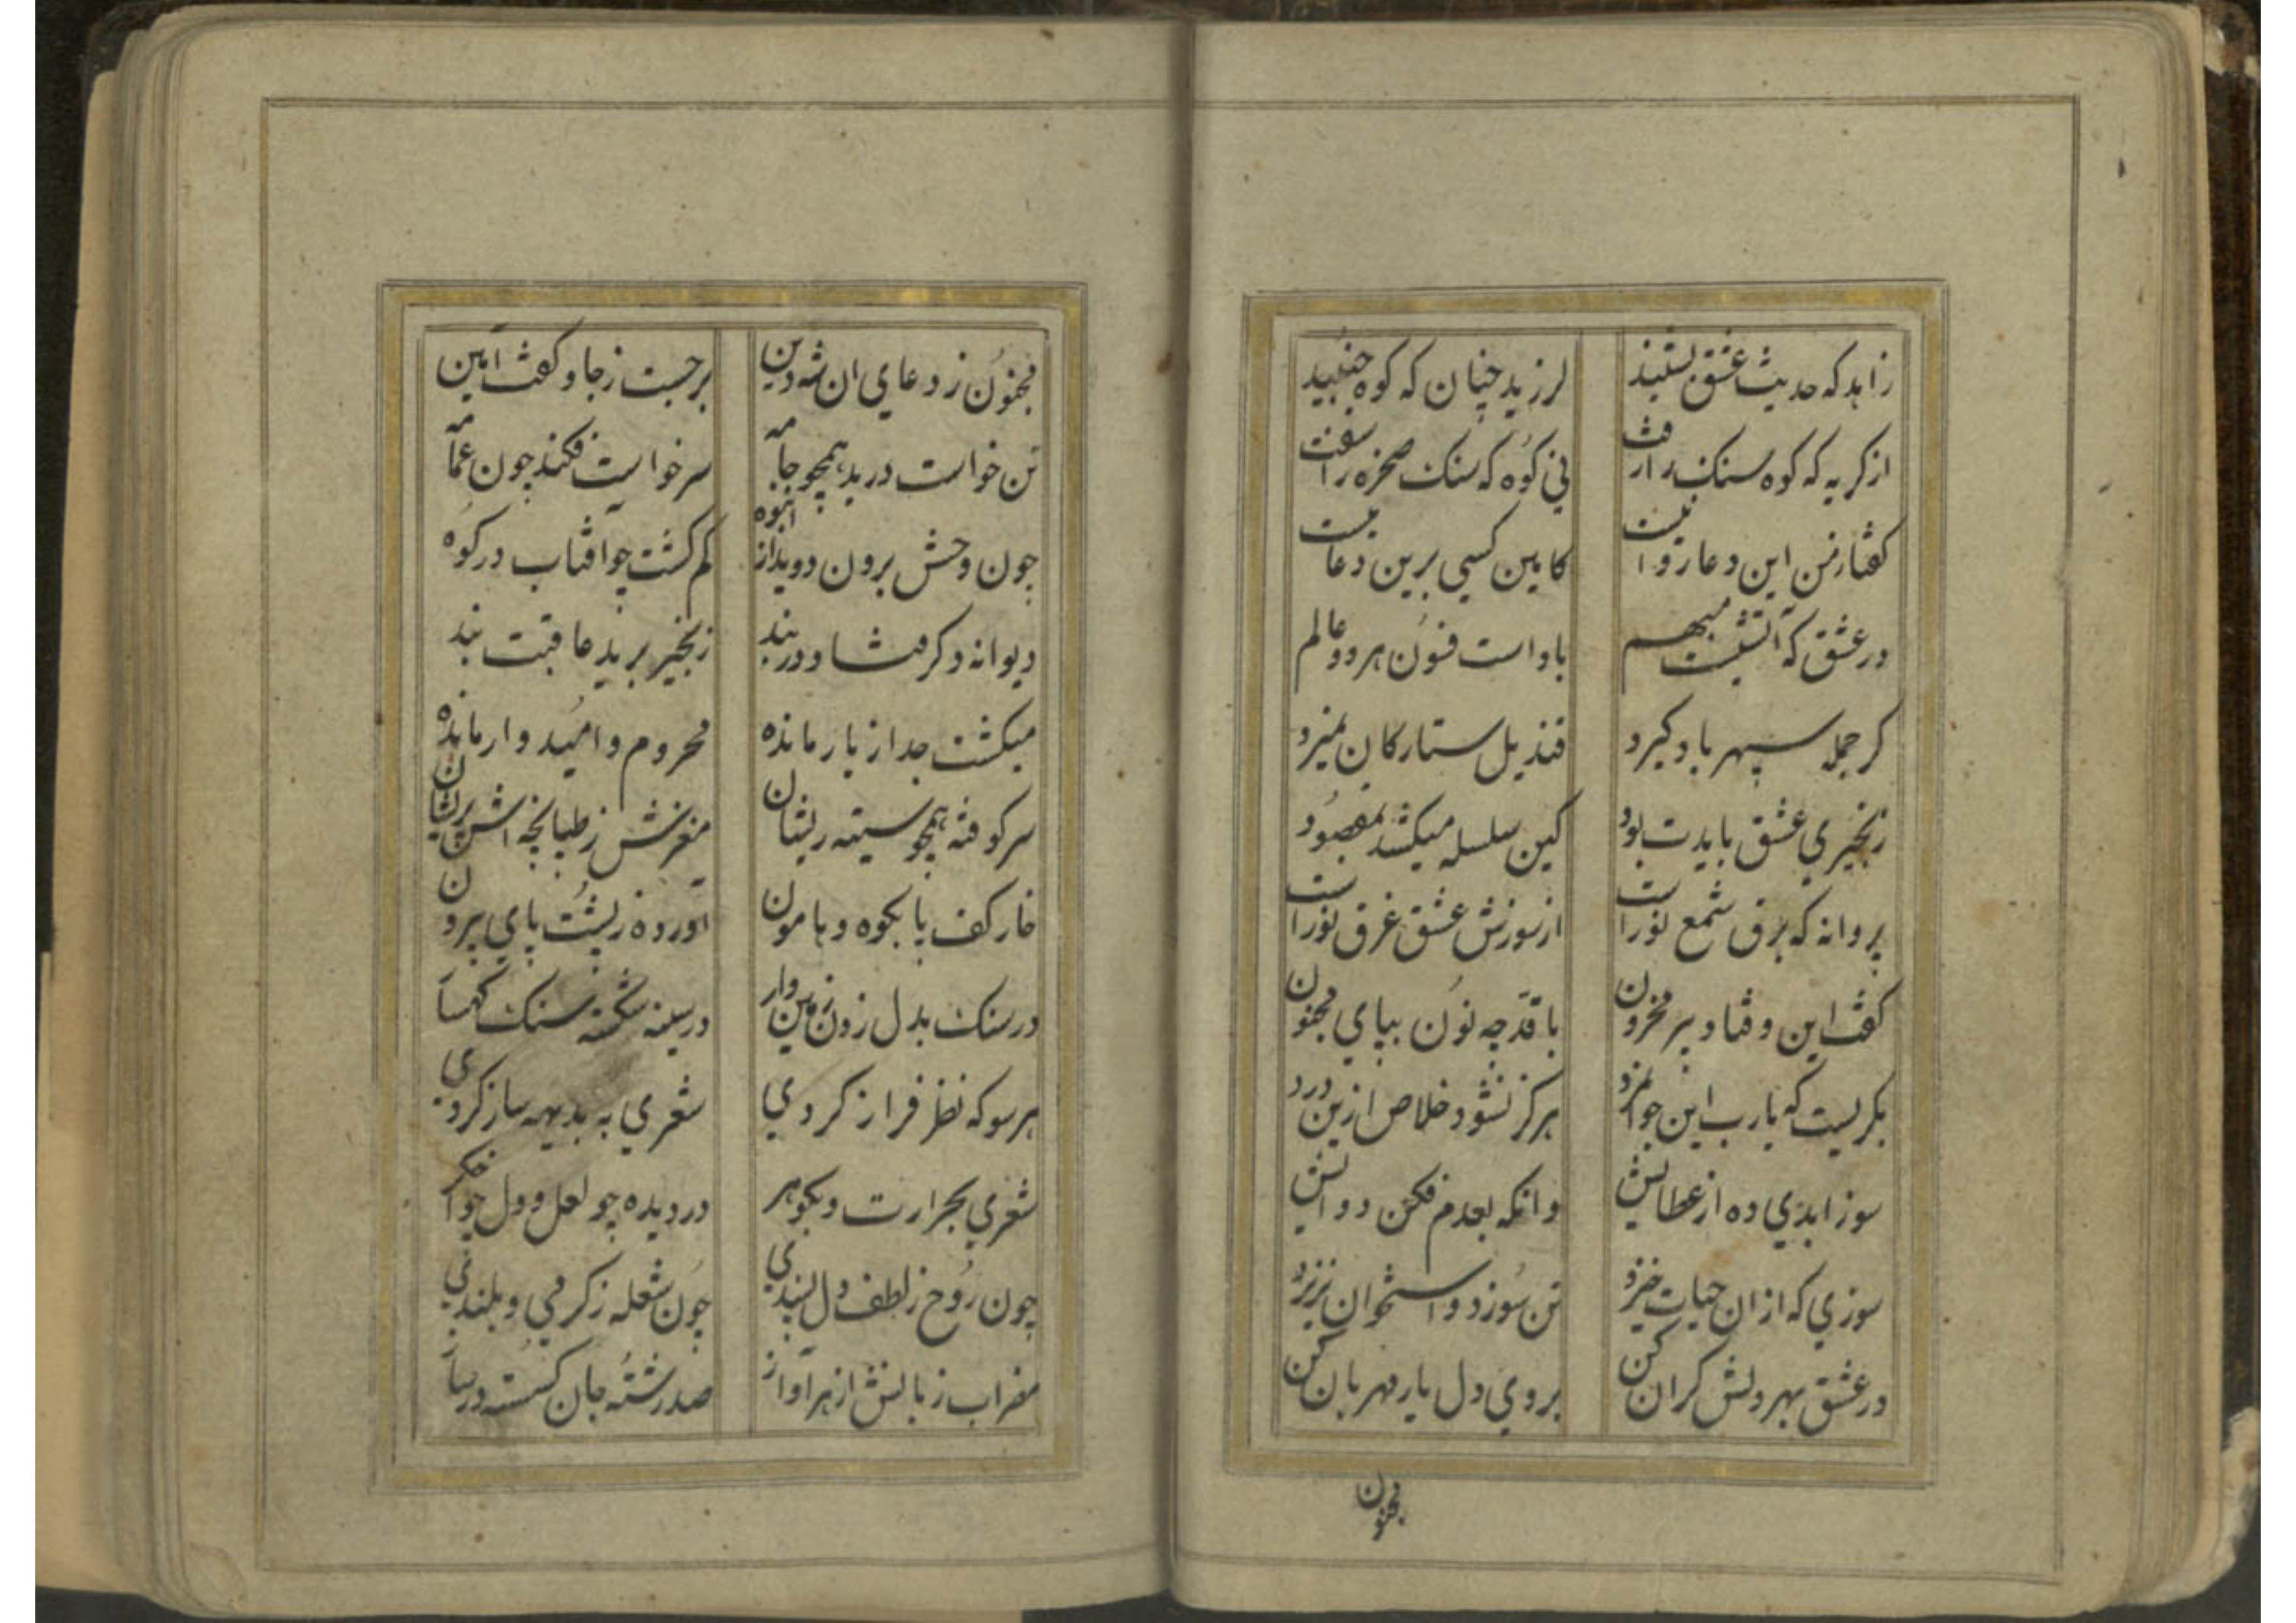 زاهد که حدیث عشق بشنید لرزید چنان که کوه جنبید
از کریه که کوه سنک را رفت نی کوه که سنک صخره را سفت
کفتا ز من این دعا روا نیست کامین کسی برین دعا نیست
در عشق که آتشیست مبهم باد است فسون هر دو عالم
کر جمله سپهر باد کیرد قندیل ستارکان نمیرد
زنجیری عشق بایدت بود کین سلسله میکشد بمقصود
پروانه که برق شمع نور است از سوزش عشق غرق نور است
کفت این و فتاد پیر محزون با قد چه نون بپای مجنون
بکریست که یارب این جوانمرد هرکز نشود خلاص ازین درد
سوز ابدی ده از عطایش وانکه بعدم فکن دوایش
سوزی که ازان حیات خیزد تن سوزد و استخوان نریزد
در عشق بهر دلش کران کن بروی دل یار مهربان کن
مجنون
مجنون ز دعای ان شه دین برجست ز جا و کفت امین
تن خواست درید همچو جامه سر خواست فکند چون عمامه
چون وحش برون دوید از انبوه کم کشت چو افتاب در کوه
دیوانه دکر فتاد در بند زنجیر برید عاقبت بند
میکشت جدا ز یار مانده محروم و امید وار مانده
سر کوفته همچو سینه ریشان مغزش ز طپانچه اش پریشان
خار کف پا بکوه و هامون اورده ز پشت پای بیرون
در سنک بدل زدن زمین وار در سینه شکسته سنک کهسا
هر سو که نظر فراز کردی شعری به بدیهه ساز کردی
شعری بحرارت و بکوهر در دیده چو لعل و دل چو اخکر
چون روح ز لطف دل پسندی چون شعله ز کرمی و بلندی
مضراب زبانش از هر آواز صد رشته جان کسسته در ساز